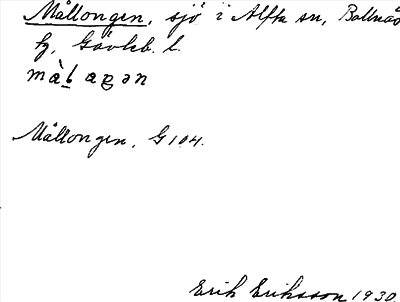 Mållongen, sjö i Alfta sn, Bollnäs
tg, Gävleb. l.
Mållongen, G 104.
Erik Eriksson 1930.